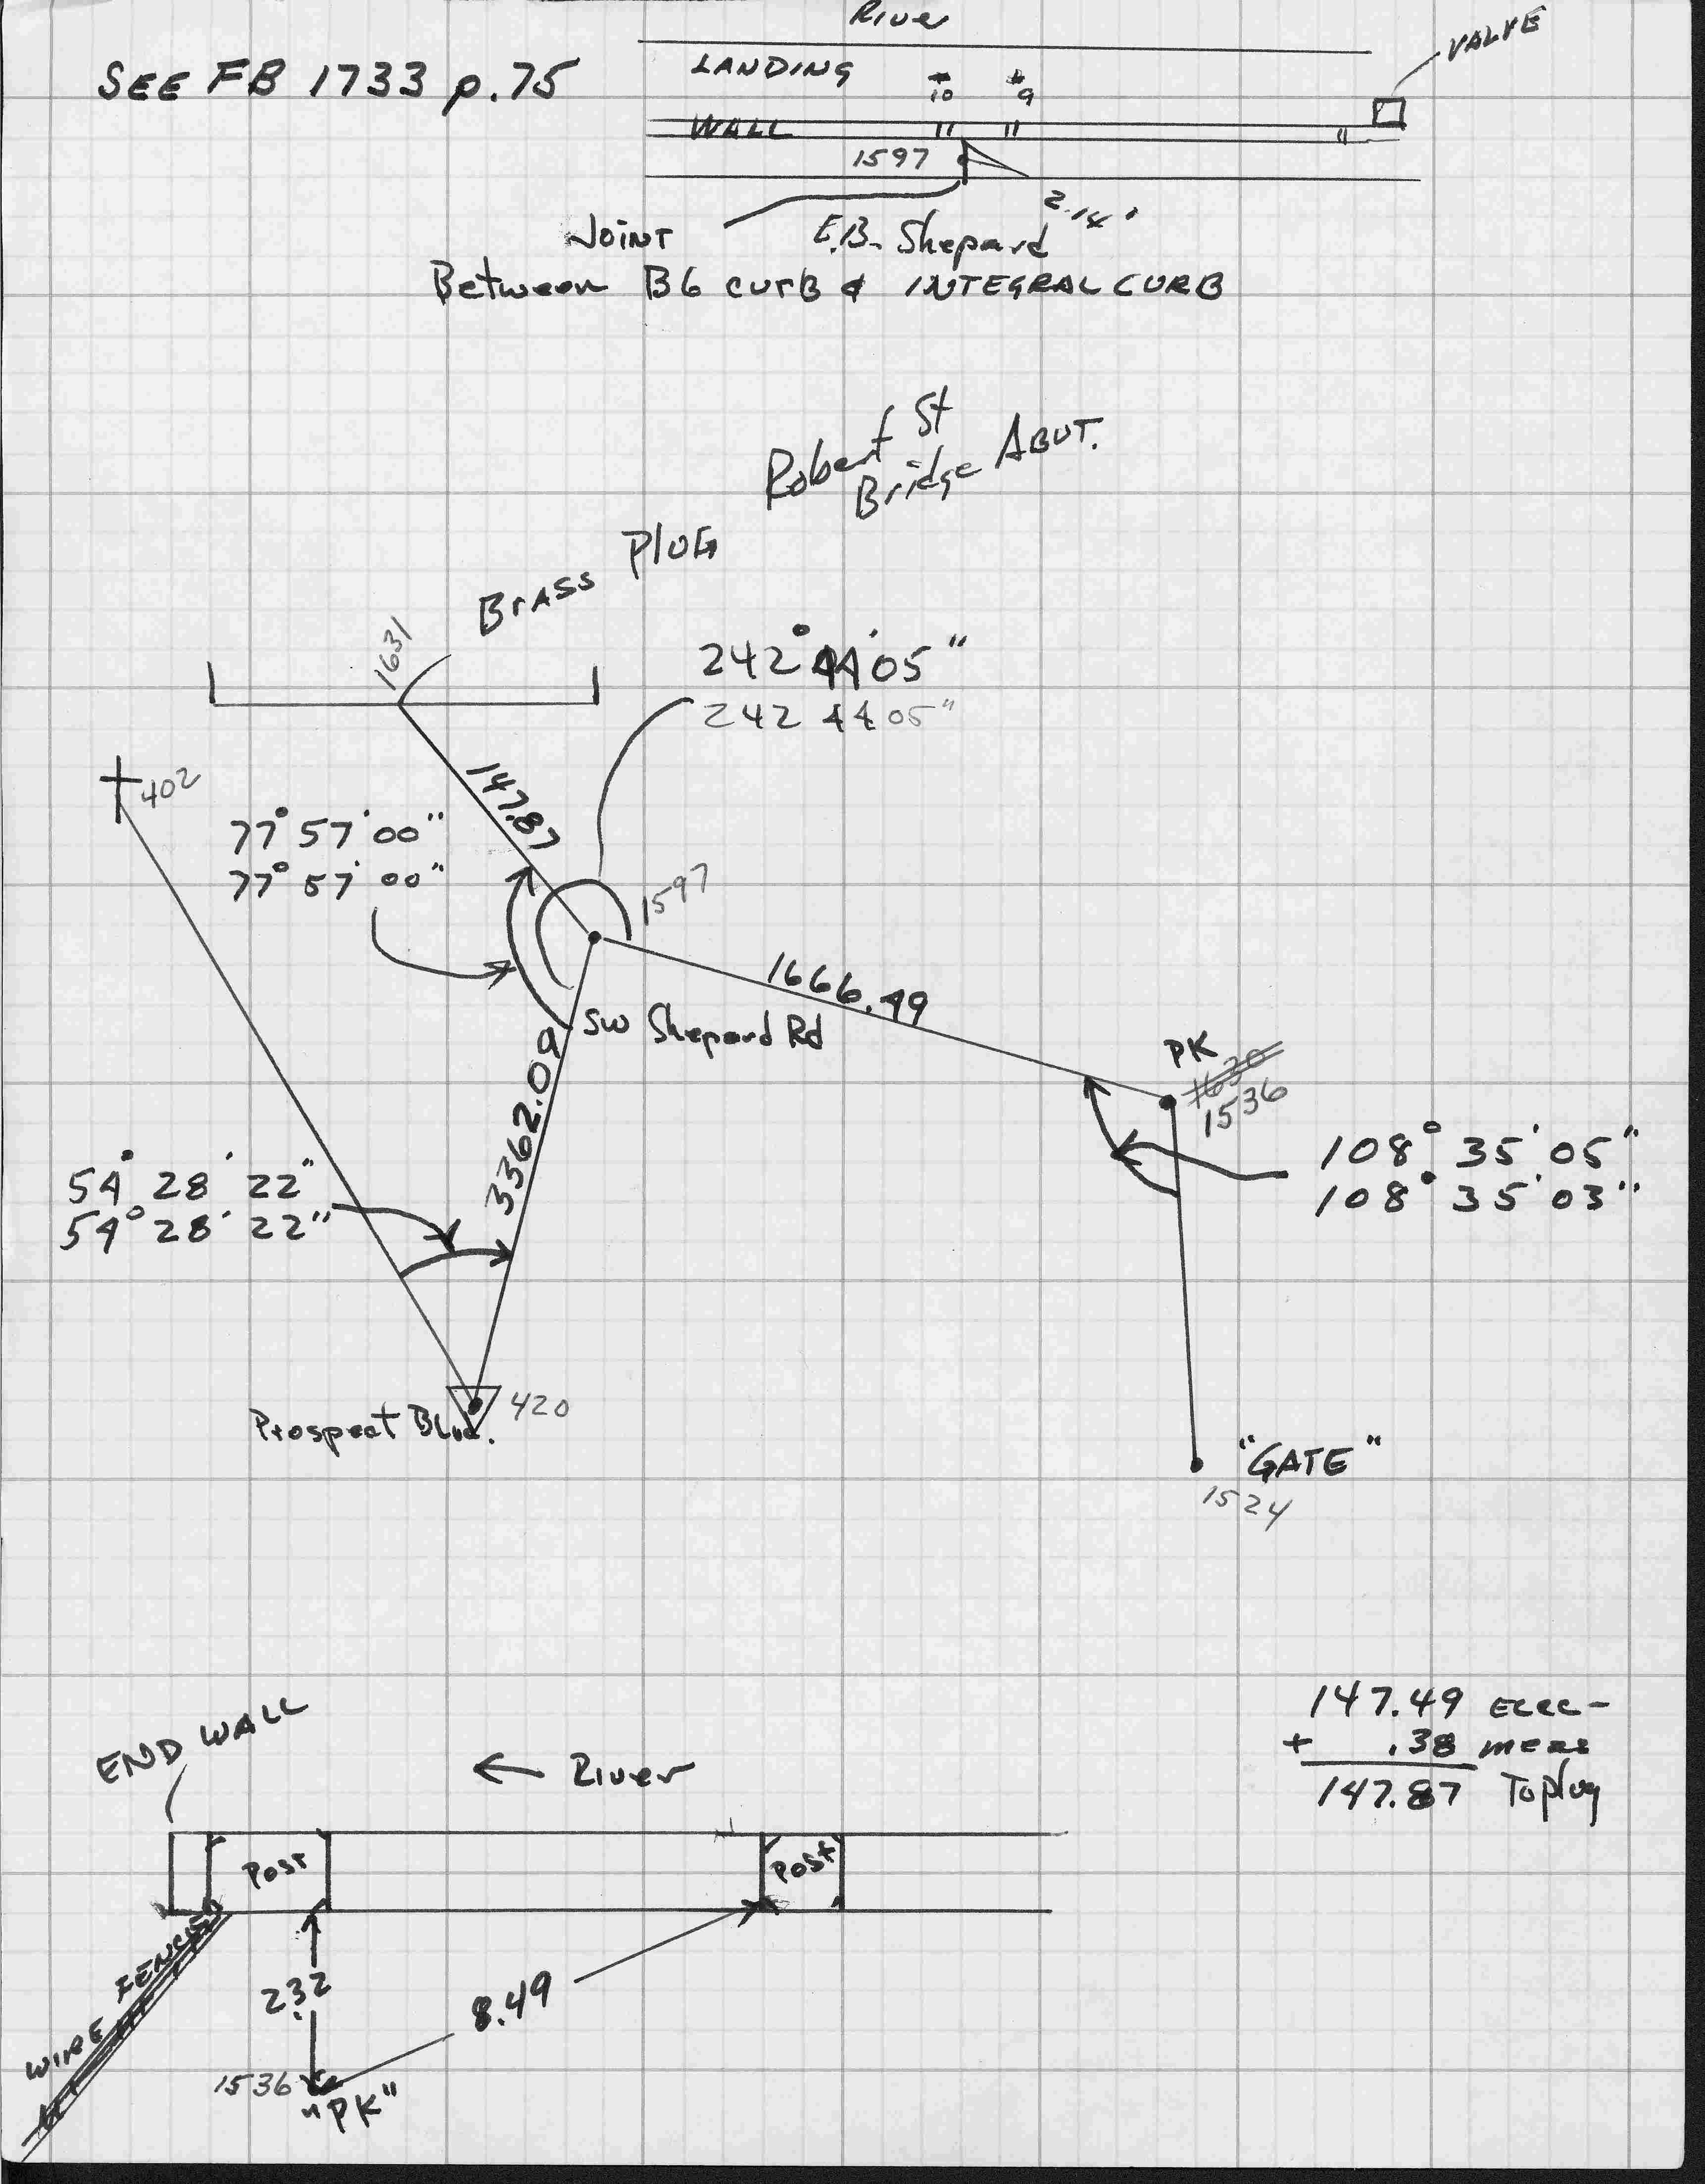 River
SEE FB 1733 p.75
LANDING
#10
#9
VALVE
WALL
1597
2.14'
JOINT
E.B. Shepard
Between B6 curb & INTEGRAL CURB
Robert St
Bridge ABUT.
BRASS PLUG
1631
242° 44' 05"
242 44 05"
402
147.87
77° 57' 00"
77° 57' 00"
1597
1666.49
SW Shepard Rd
3362.09
PK
1630
1536
108° 35' 05"
108° 35' 03"
54° 28' 22"
54° 28' 22"
Prospect Blvd.
420
"GATE"
1524
147.49 ELEC-
+ .38 meas
147.87 To plug
END WALL
← River
Post
Post
WIRE FENCE
2.32
8.49
1536
"PK"